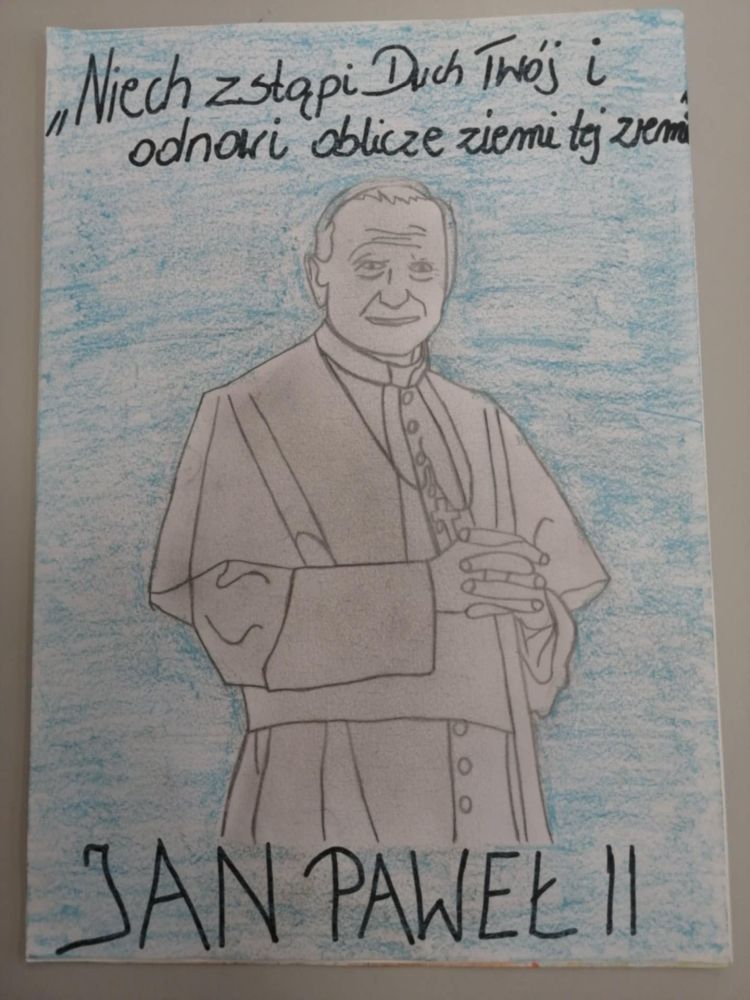 „Niech zstąpi Duch Twój i
odnowi oblicze ziemi tej ziemi"
JAN PAWEŁ II